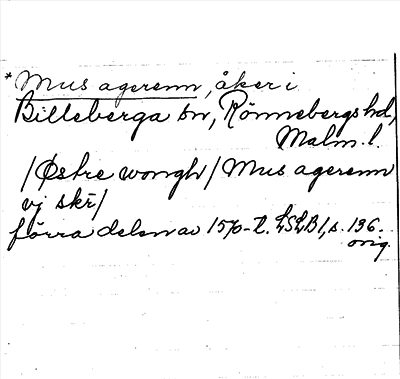 *Mus agerenn, åker i
Billeberga sn, Rönnebergs hd,
Malm. l.
/Østre wongh/ Mus agerenn
vj skr/
förra delen av 1570-t. LSLB1, s. 136.
orig.